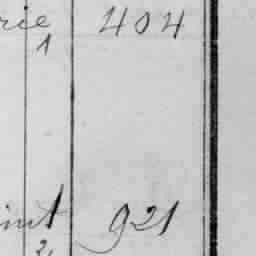 rie 404
1
int 921
2